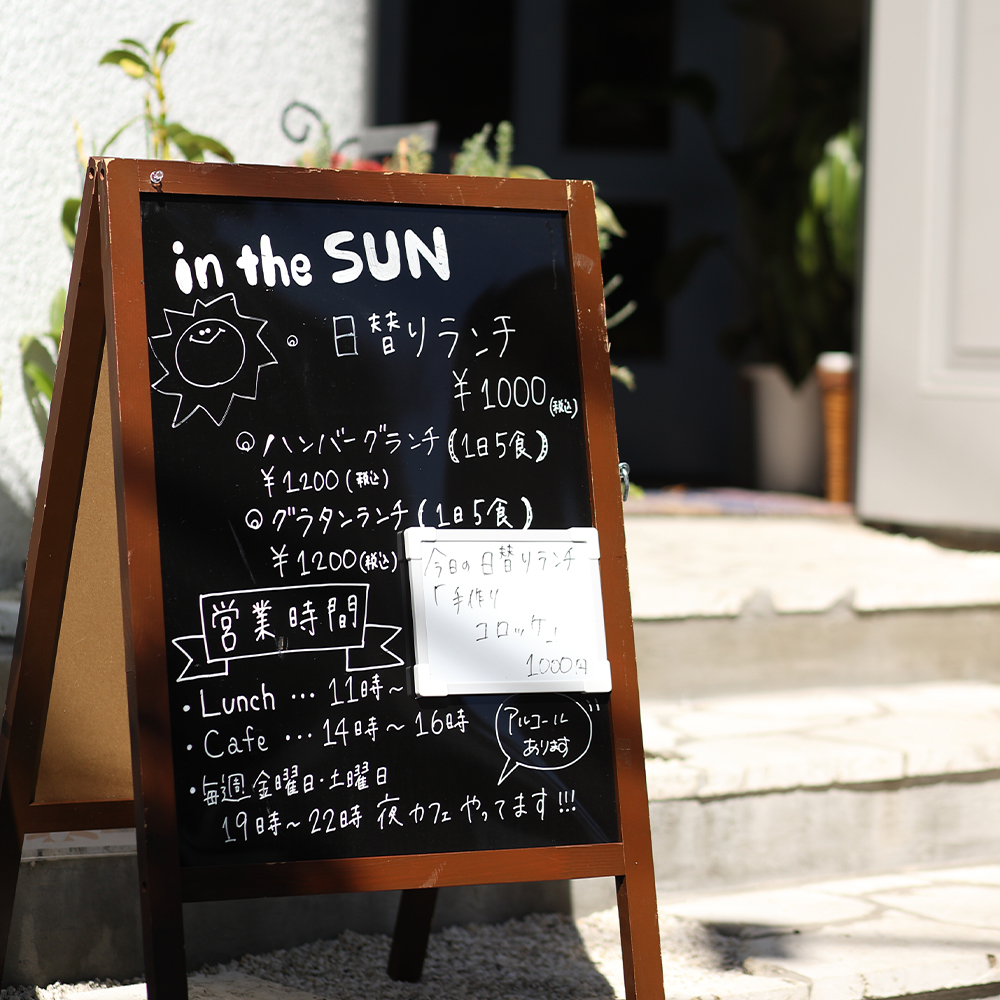 in the SUN
日替りランチ
¥1000(税込)
ハンバーグランチ(1日5食)
¥1200(税込)
グラタンランチ(1日5食)
¥1200(税込)
今日の日替りランチ
「手作り
コロッケ」
1000円
営業時間
・Lunch … 11時～
・Cafe … 14時～16時
アルコール
あります
・毎週金曜日・土曜日
19時～22時 夜カフェやってます!!!